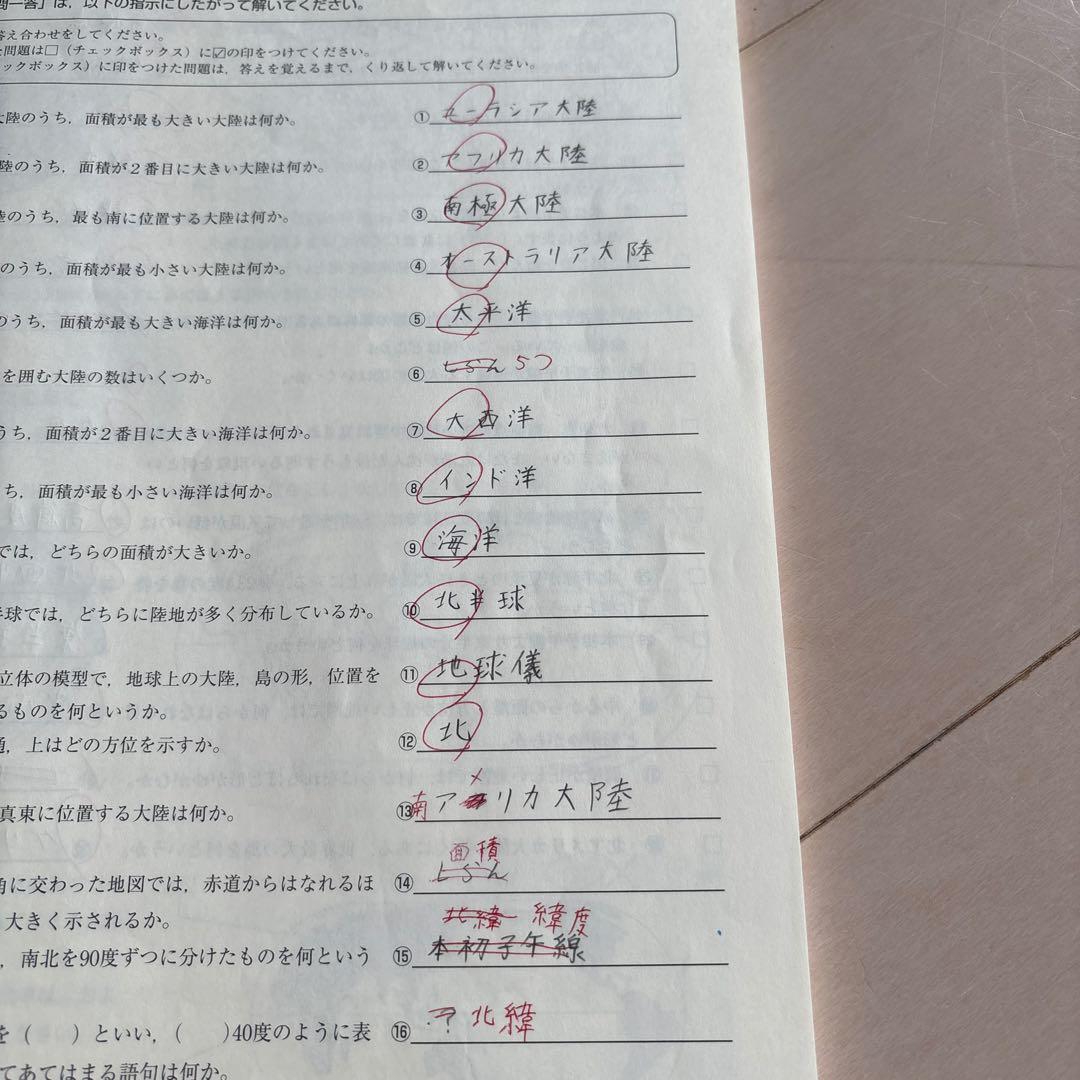 問一答」は，以下の指示にしたがって解いてください。
答え合わせをしてください。
問題は□（チェックボックス）に☑の印をつけてください。
ックボックス）に印をつけた問題は，答えを覚えるまで，くり返して解いてください。
大陸のうち，面積が最も大きい大陸は何か。 ① ユーラシア大陸
陸のうち，面積が2番目に大きい大陸は何か。 ② アフリカ大陸
陸のうち，最も南に位置する大陸は何か。 ③ 南極大陸
のうち，面積が最も小さい大陸は何か。 ④ オーストラリア大陸
のうち，面積が最も大きい海洋は何か。 ⑤ 太平洋
を囲む大陸の数はいくつか。 ⑥ 5つ
うち，面積が2番目に大きい海洋は何か。 ⑦ 大西洋
ち，面積が最も小さい海洋は何か。 ⑧ インド洋
では，どちらの面積が大きいか。 ⑨ 海洋
半球では，どちらに陸地が多く分布しているか。 ⑩ 北半球
立体の模型で，地球上の大陸，島の形，位置を ⑪ 地球儀
るものを何というか。
通，上はどの方位を示すか。 ⑫ 北
真東に位置する大陸は何か。 ⑬ 南アメリカ大陸
面積
角に交わった地図では，赤道からはなれるほ ⑭
大きく示されるか。
北緯 緯度
，南北を90度ずつに分けたものを何という ⑮ 本初子午線
を（　）といい，（　）40度のように表 ⑯ ? 北緯
てあてはまる語句は何か。